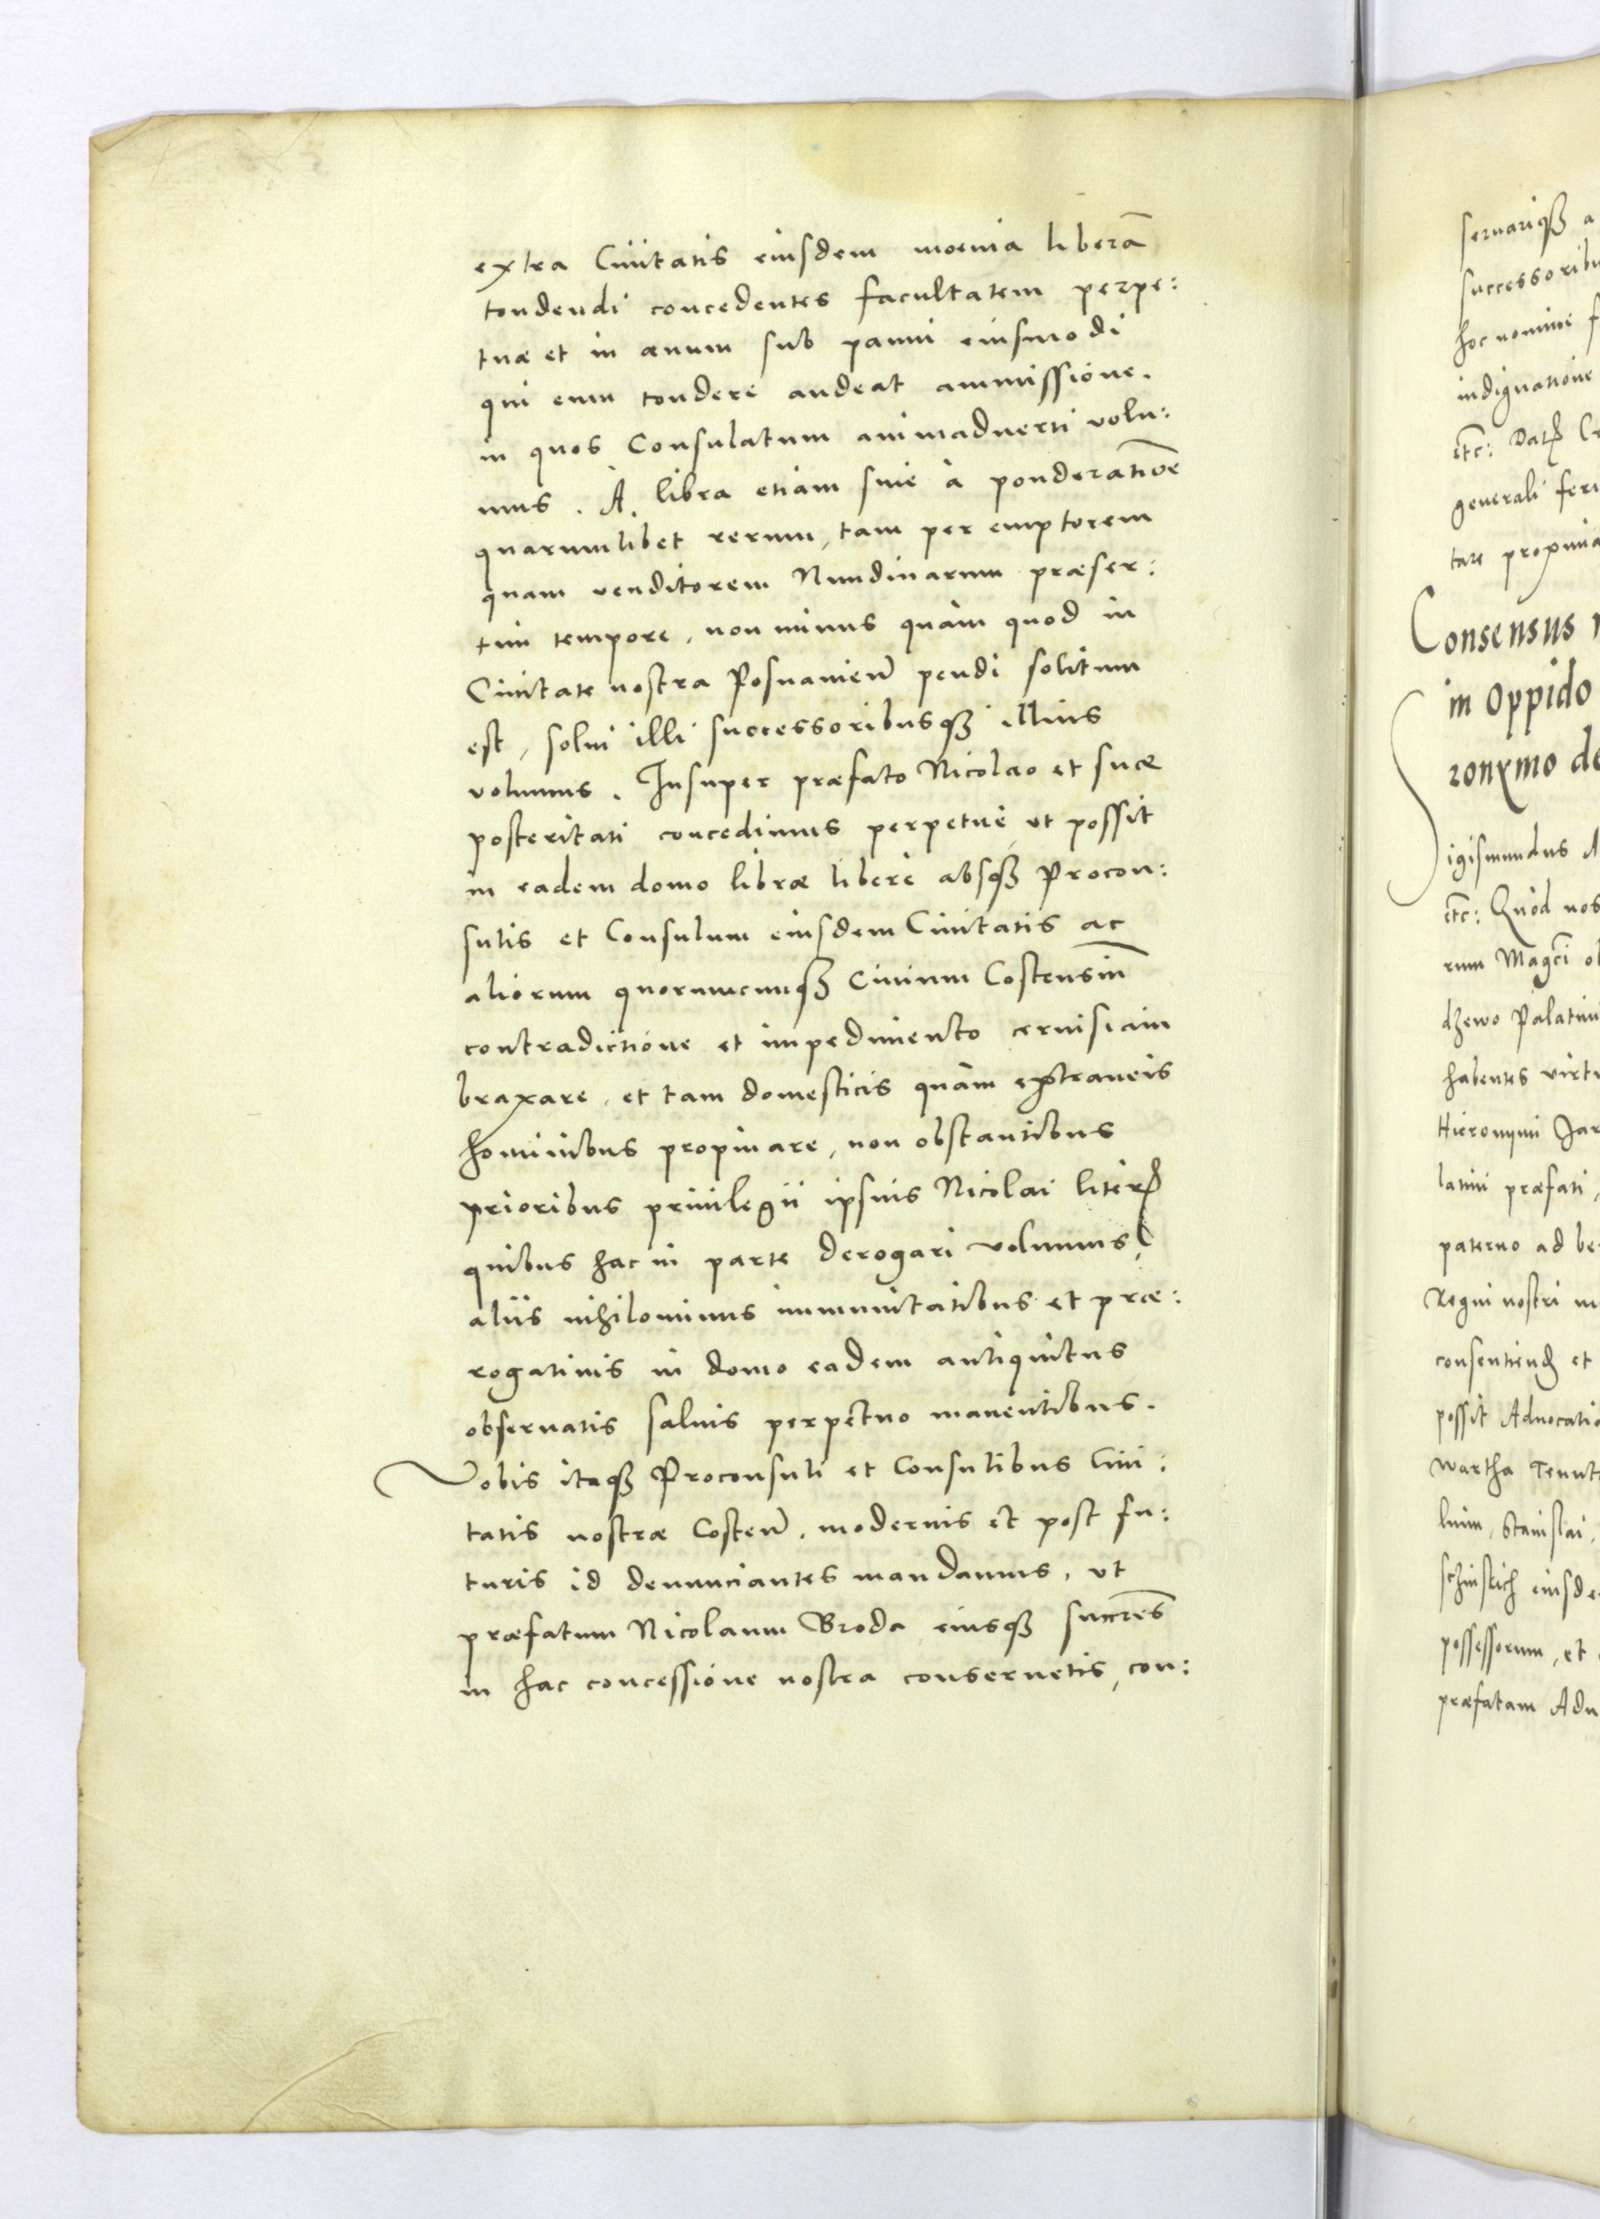 extra Ciuitatis eiusdem moenia liberā
tondendi concedentes facultatem perpe:
tuæ et in æuum sub panni eiusmodi
qui eum tondere audeat ammissione.
in quos Consulatum animaduerti volu:
mus. A libra etiam siue à ponderatiōe
quarumlibet rerum, tam per emptorem
quam venditorem Nundinarum præser:
tim tempore, non minus quàm quod in
Ciuitate nostra Posnanieñ pendi solitum
est, solui illi successoribusqʒ illius
volumus. Insuper præfato Nicolao et suæ
posteritati concedimus perpetuè vt possit
in eadem domo libræ liberè absqʒ Procon:
sulis et Consulum eiusdem Ciuitatis ac
aliorum quorumcunqʒ Ciuium Costensiū
contradictione et impedimento ceruisiam
braxare, et tam domesticis quàm extraneis
hominibus propinare, non obstantibus
prioribus priuilegii ipsius Nicolai literꝭ
quibus hac in parte derogari volumus,
aliis nihilominus immunitatibus et præ:
rogatiuis in domo eadem antiquitus
obseruatis saluis perpetuo manentibus.
Vobis itaqʒ Proconsuli et Consulibus Ciui:
tatis nostræ Costeñ. modernis et post fu:
turis id denunciantes mandamus, vt
præfatum Nicolaum Broda eiusqʒ succr̄es
in hac concessione nostra conseruetis, con:
seruariqʒ a
successoribu
hoc nomine f
indignatione
etc: Datꝭ Cr
generali feri
tare propinia
Consensus
in Oppido
ronymo de
Sigismundus A
etc: Quòd nos
rum Magci ol
dzewo Palatini
habentes virtu
Hieronymi Jar
latini præfati,
paterno ad be
Regni nostri
consentiendꝭ et
possit Aduocatia
Wartha Tenut
linim, Stanislai,
eiusde
possessorum, et
præfatam Adu